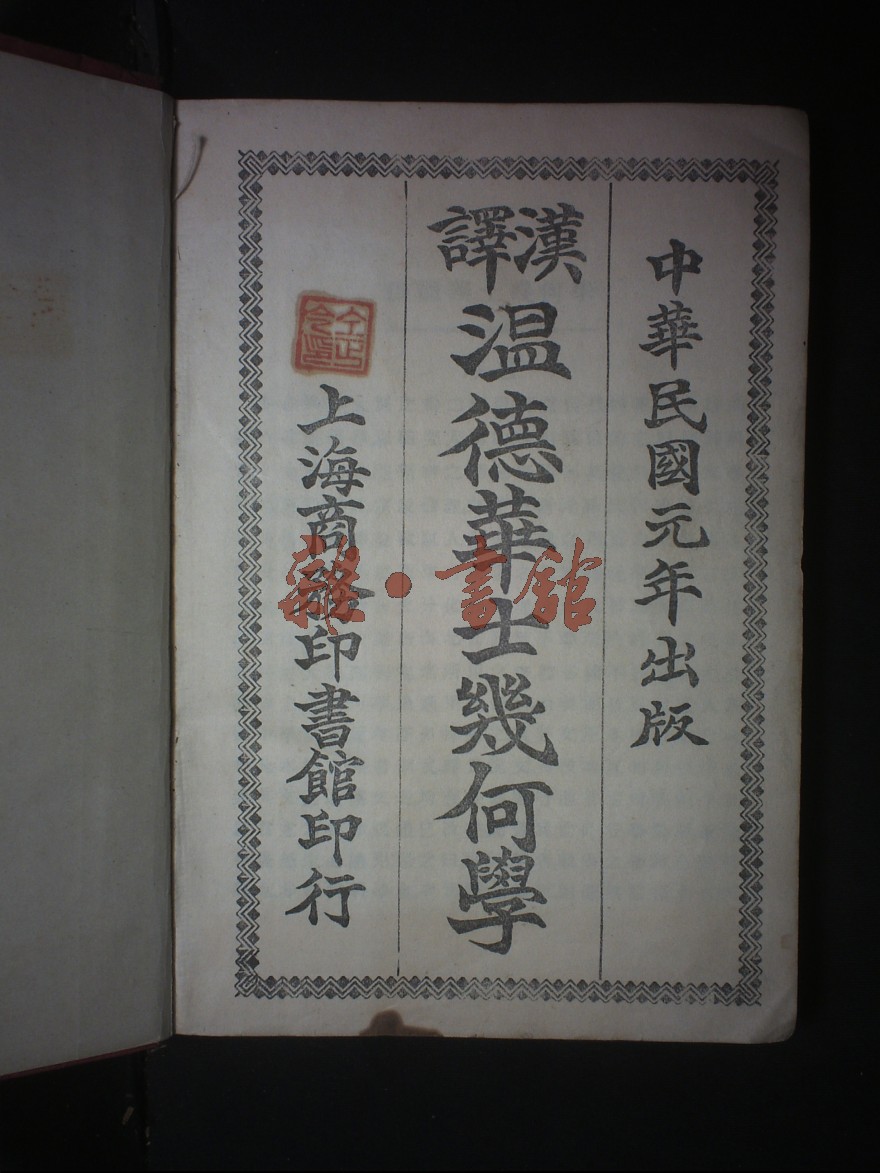 中華民國元年出版
漢譯
温德華士幾何學
上海商務印書館印行
雜·書館